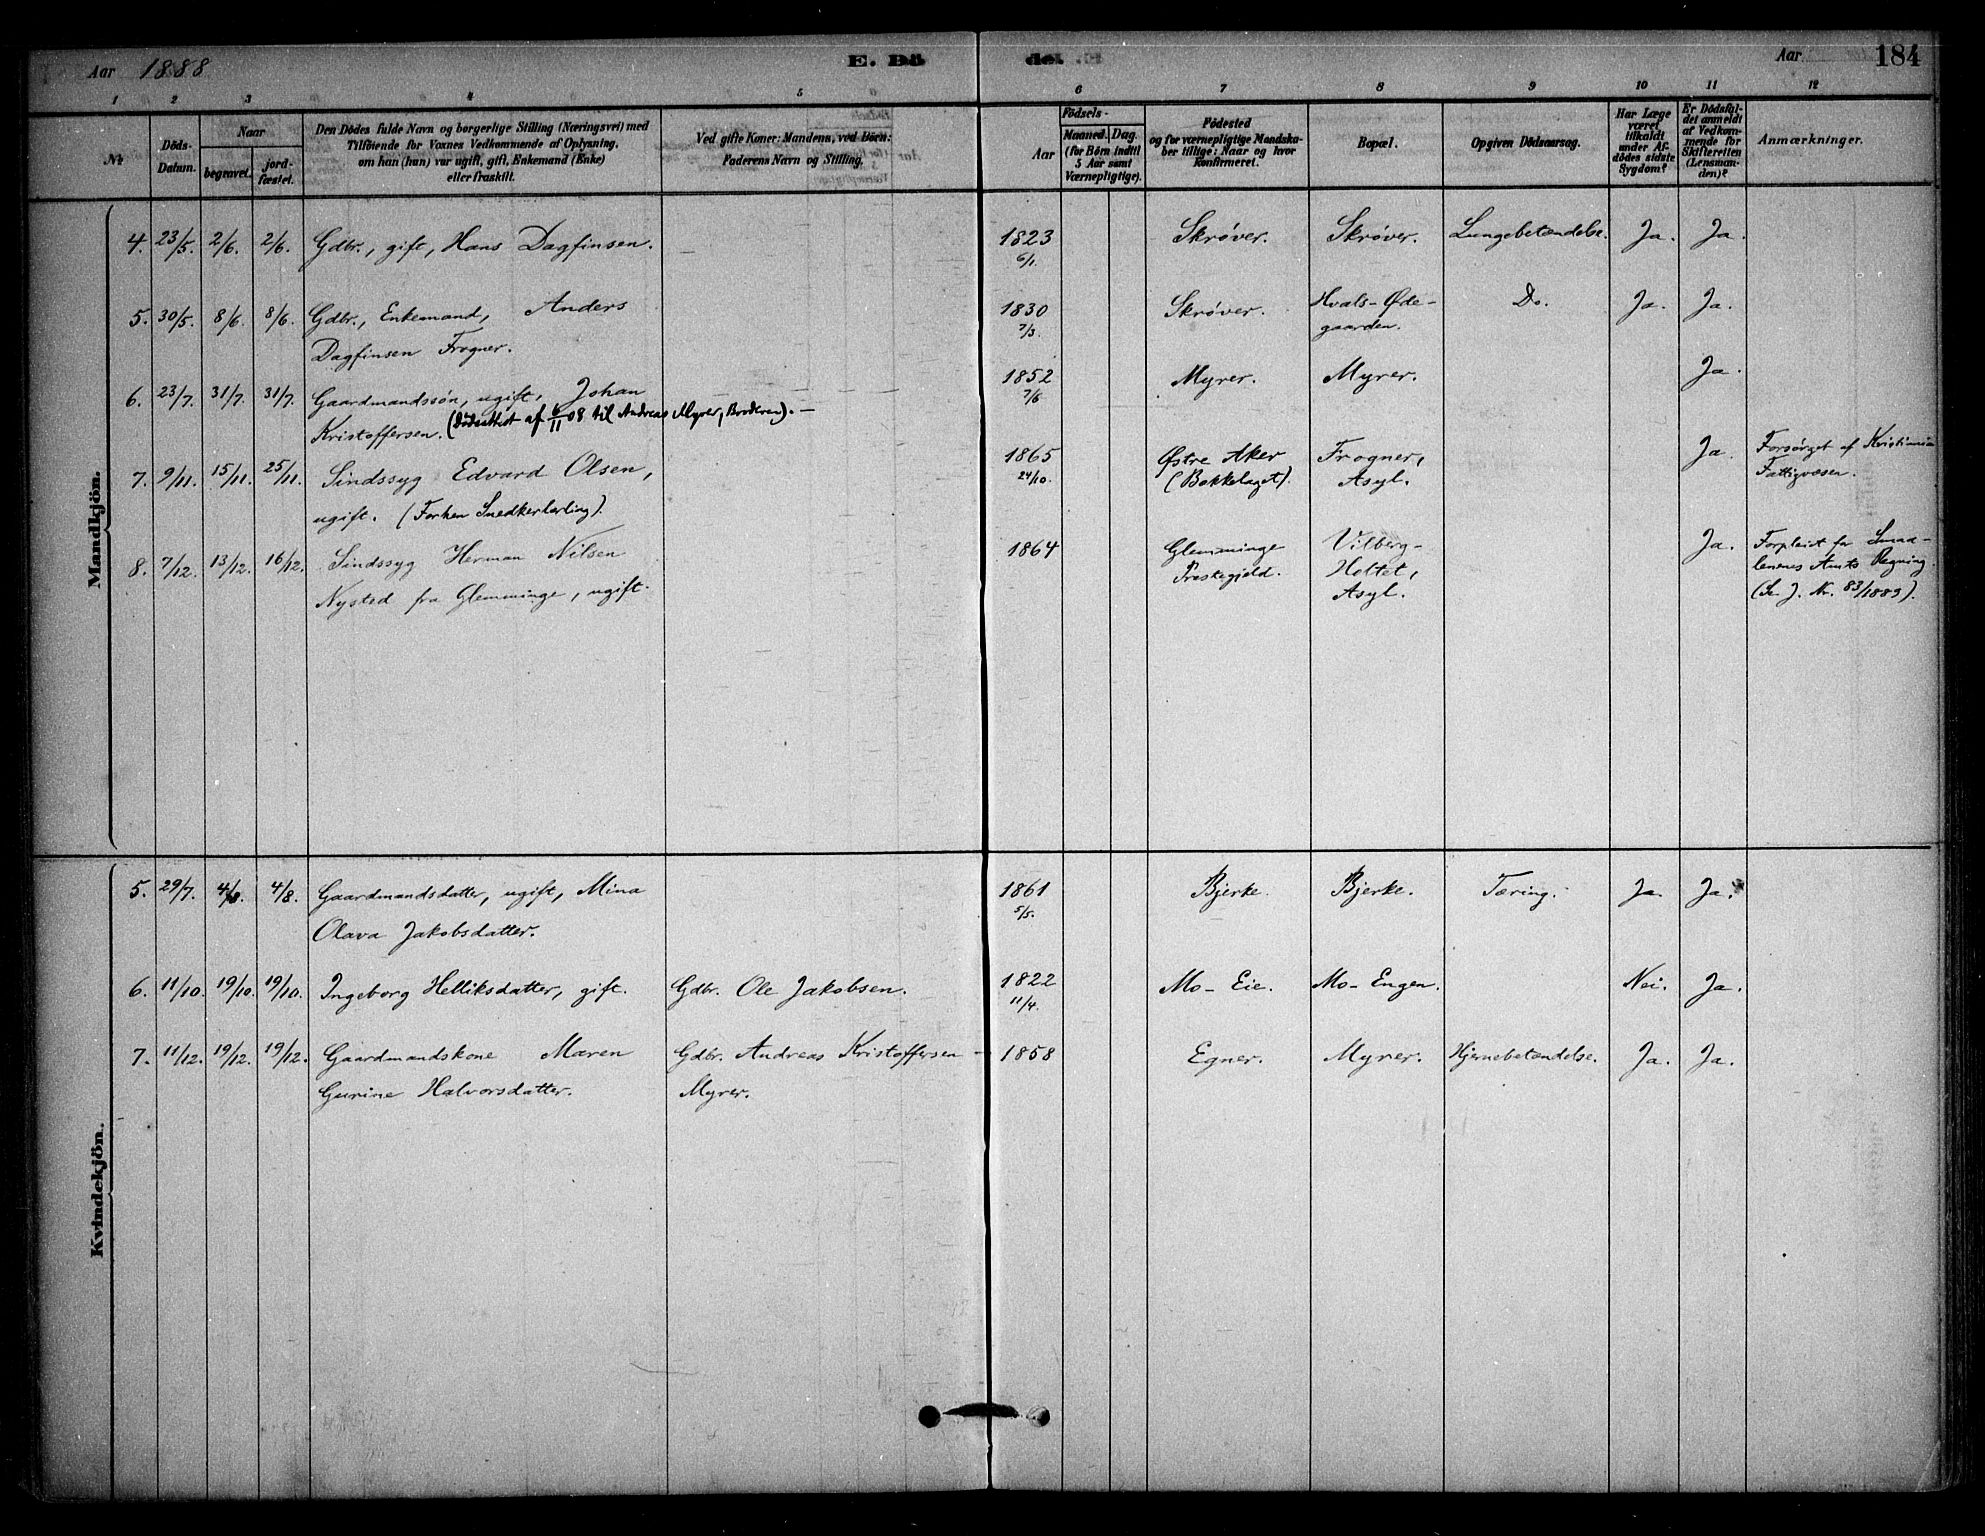 Aar 1888 E. Dö del. Aar 184
1 2 3 4 5 6 7 8 9 10 11 12
№ Döds-Datum. Naar begravet. jord-fæstet.
Den Dödes fulde Navn og borgerlige Stilling (Næringsvei) med
Tilföiende for Voxnes Vedkommende af Oplysning,
om han (hun) var ugift, gift, Enkemand (Enke)
eller fraskilt.
Ved gifte Koner: Mandens, ved Börn:
Faderens Navn og Stilling.
Födsels-
Aar Maaned. Dag.
(for Börn indtil
5 Aar samt
Værnepligtige).
Födested
og for værnepligtige Mandska-
ber tillige: Naar og hvor
Konfirmeret.
Bopæl.
Opgiven Dödsaarsag.
Har Læge
været
tilkaldt
under Af-
dödes sidste
Sygdom?
Er Dödsfal-
det anmeldt
af Vedkom-
mende for
Skifteretten
(Lensman-
den)?
Anmærkninger.
Mandkjön.
4. 23/5. 2/6. 2/6. Gdbr., gift, Hans Dagfinsen. 1823 Skrøver. Skrøver. Lungebetændelse. Ja. Ja.
6/1.
5. 30/5. 8/6. 8/6. Gdbr., Enkemand, Anders 1830 Skrøver. Hvals-Øde- Do. Ja. Ja.
Dagfinsen Frogner. 7/3. gaarden.
6. 23/7. 31/7. 31/7. Gaardmandssøn, ugift, Johan 1852 Myrer. Myrer. Ja.
Kristoffersen. (Dødsattest af 6/11 08 til Andreas Myrer, Broderen). — 7/6
7. 9/11. 15/11. 25/11. Sindssyg Edvard Olsen, 1865 Østre Aker Frogner, Ja. Forsørget af Kristiania
ugift. (Forhen Snedkerlærling). 24/10. (Bækkelaget). Asyl. Fattigvæsen.
8. 7/12. 13/12. 16/12. Sindssyg Herman Nilsen 1864 Glemminge Vilberg- Ja. Forpleiet for Smaa-
Nysted fra Glemminge, ugift. Præstegjeld. Holtet, lenenes Amts Regning.
Asyl. (Se J. Nr. 83/1889).
Kvindekjön.
5. 29/7. 4/8. 4/8. Gaardmandsdatter, ugift, Mina 1861 Bjerke. Bjerke. Tæring. Ja. Ja.
Olava Jakobsdatter. 5/5.
6. 11/10. 19/10. 19/10. Ingeborg Helliksdatter, gift. Gdbr. Ole Jakobsen. 1822 Mo-Eie. Mo-Engen. Nei. Ja.
11/4.
7. 11/12. 19/12. 19/12. Gaardmandskone Maren Gdbr. Andreas Kristoffersen - 1858 Egner. Myrer. Hjernebetændelse. Ja. Ja.
Gurine Halvorsdatter. Myrer.